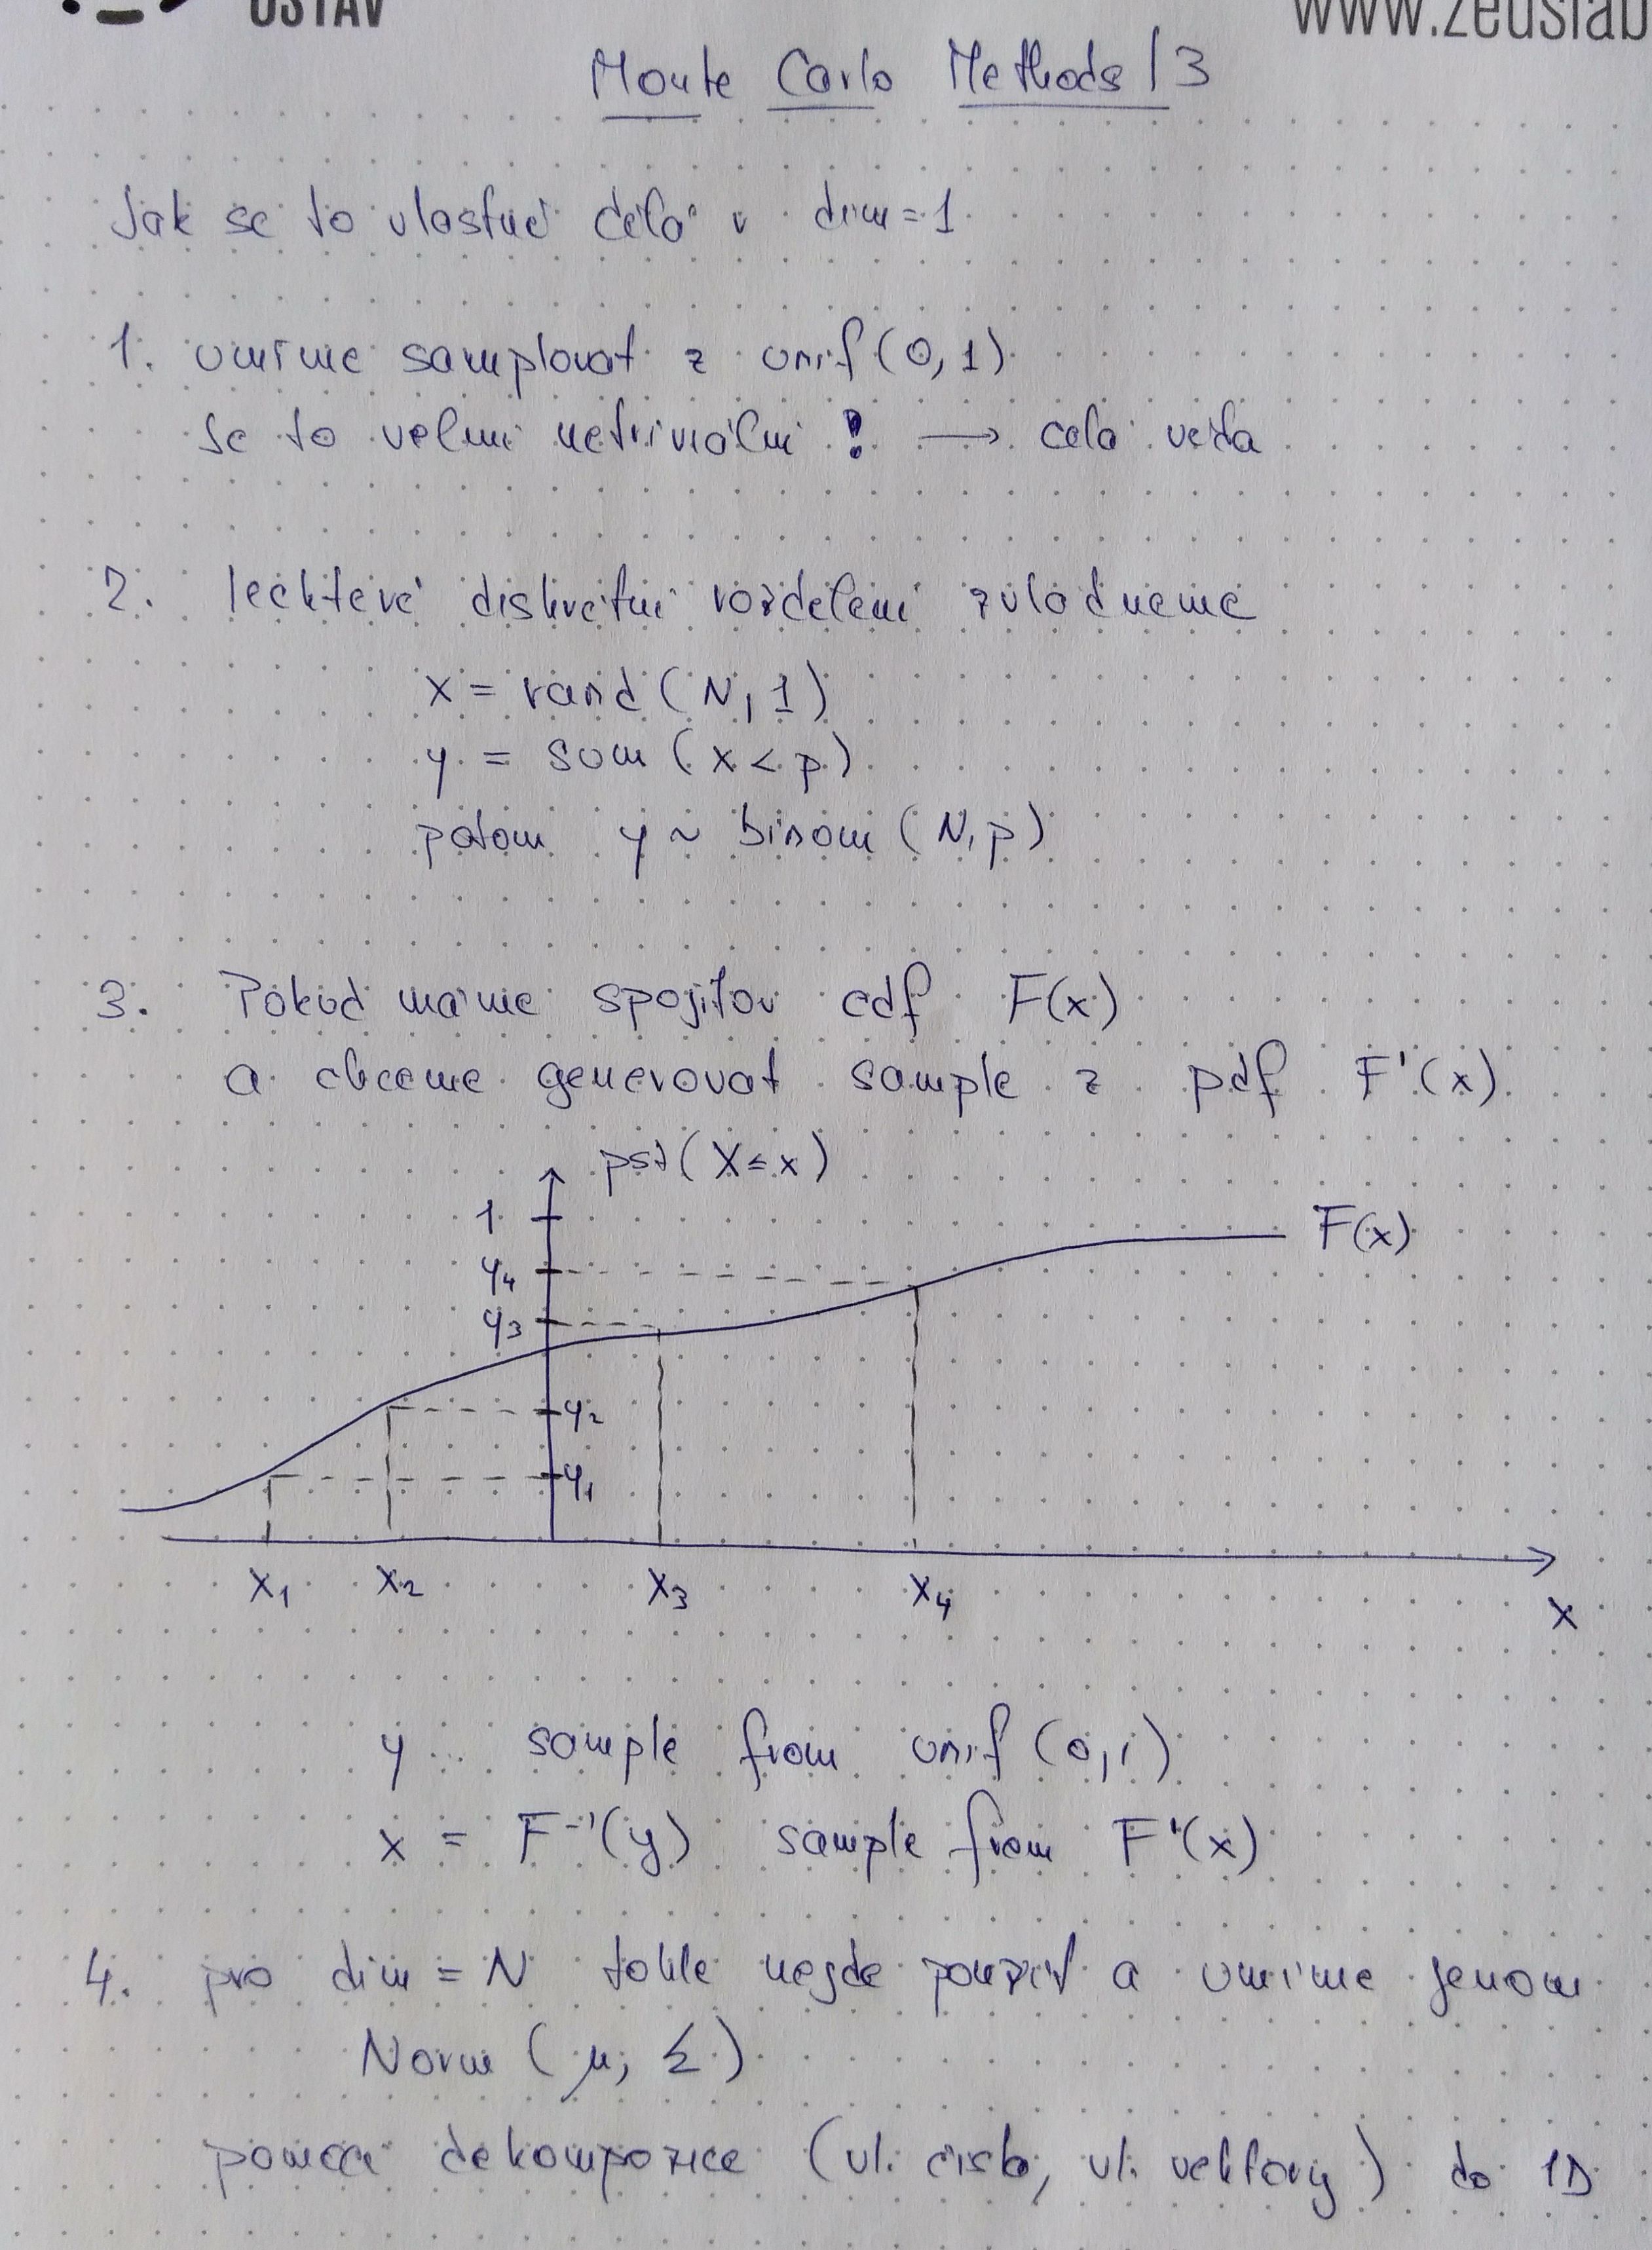 ÚSTAV
www.zeuslab
Monte Carlo Methods / 3
Jak se to vlastně dělá v dim = 1
1. umíme samplovat z unif(0,1)
Je to velmi netriviální ! → celá věda
2. leckteré diskrétní rozdělení zvládneme
x = rand(N,1)
y = sum(x < p)
potom y ~ binom(N,p)
3. Pokud máme spojitou cdf F(x)
a chceme generovat sample z pdf F'(x)
pst(X ≤ x)
1
F(x)
y4
y3
y2
y1
x1 x2 x3 x4
x
y ... sample from unif(0,1)
x = F⁻¹(y) sample from F'(x)
4. pro dim = N tohle nejde použít a umíme jenom
Norm(μ, Σ)
pomocí dekompozice (vl. čísla, vl. vektory) do 1D